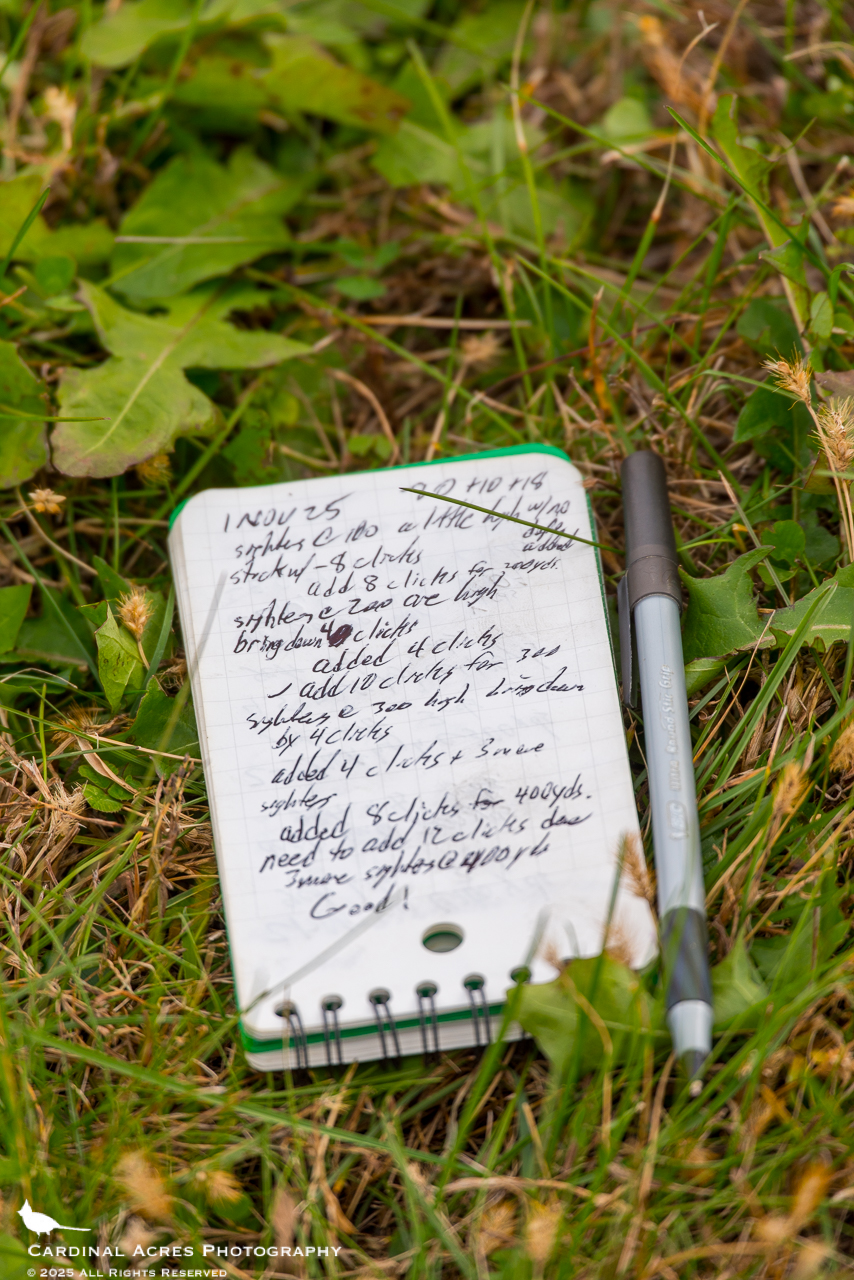 1 NOV 25 +10 +18
sighters @ 100 a little high w/no
dope
added
stick w/ -8 clicks
add 8 clicks for 200yds.
sighters @ 200 are high
bring down 4 clicks
added 4 clicks
add 10 clicks for 300
sighters @ 300 high bring down
by 4 clicks
added 4 clicks + 3 more
sighters
added 8 clicks for 400yds.
need to add 12 clicks
3 more sighters @ 400 yds
Good!
Round Stic Grip
BIC
CARDINAL ACRES PHOTOGRAPHY
© 2025 ALL RIGHTS RESERVED